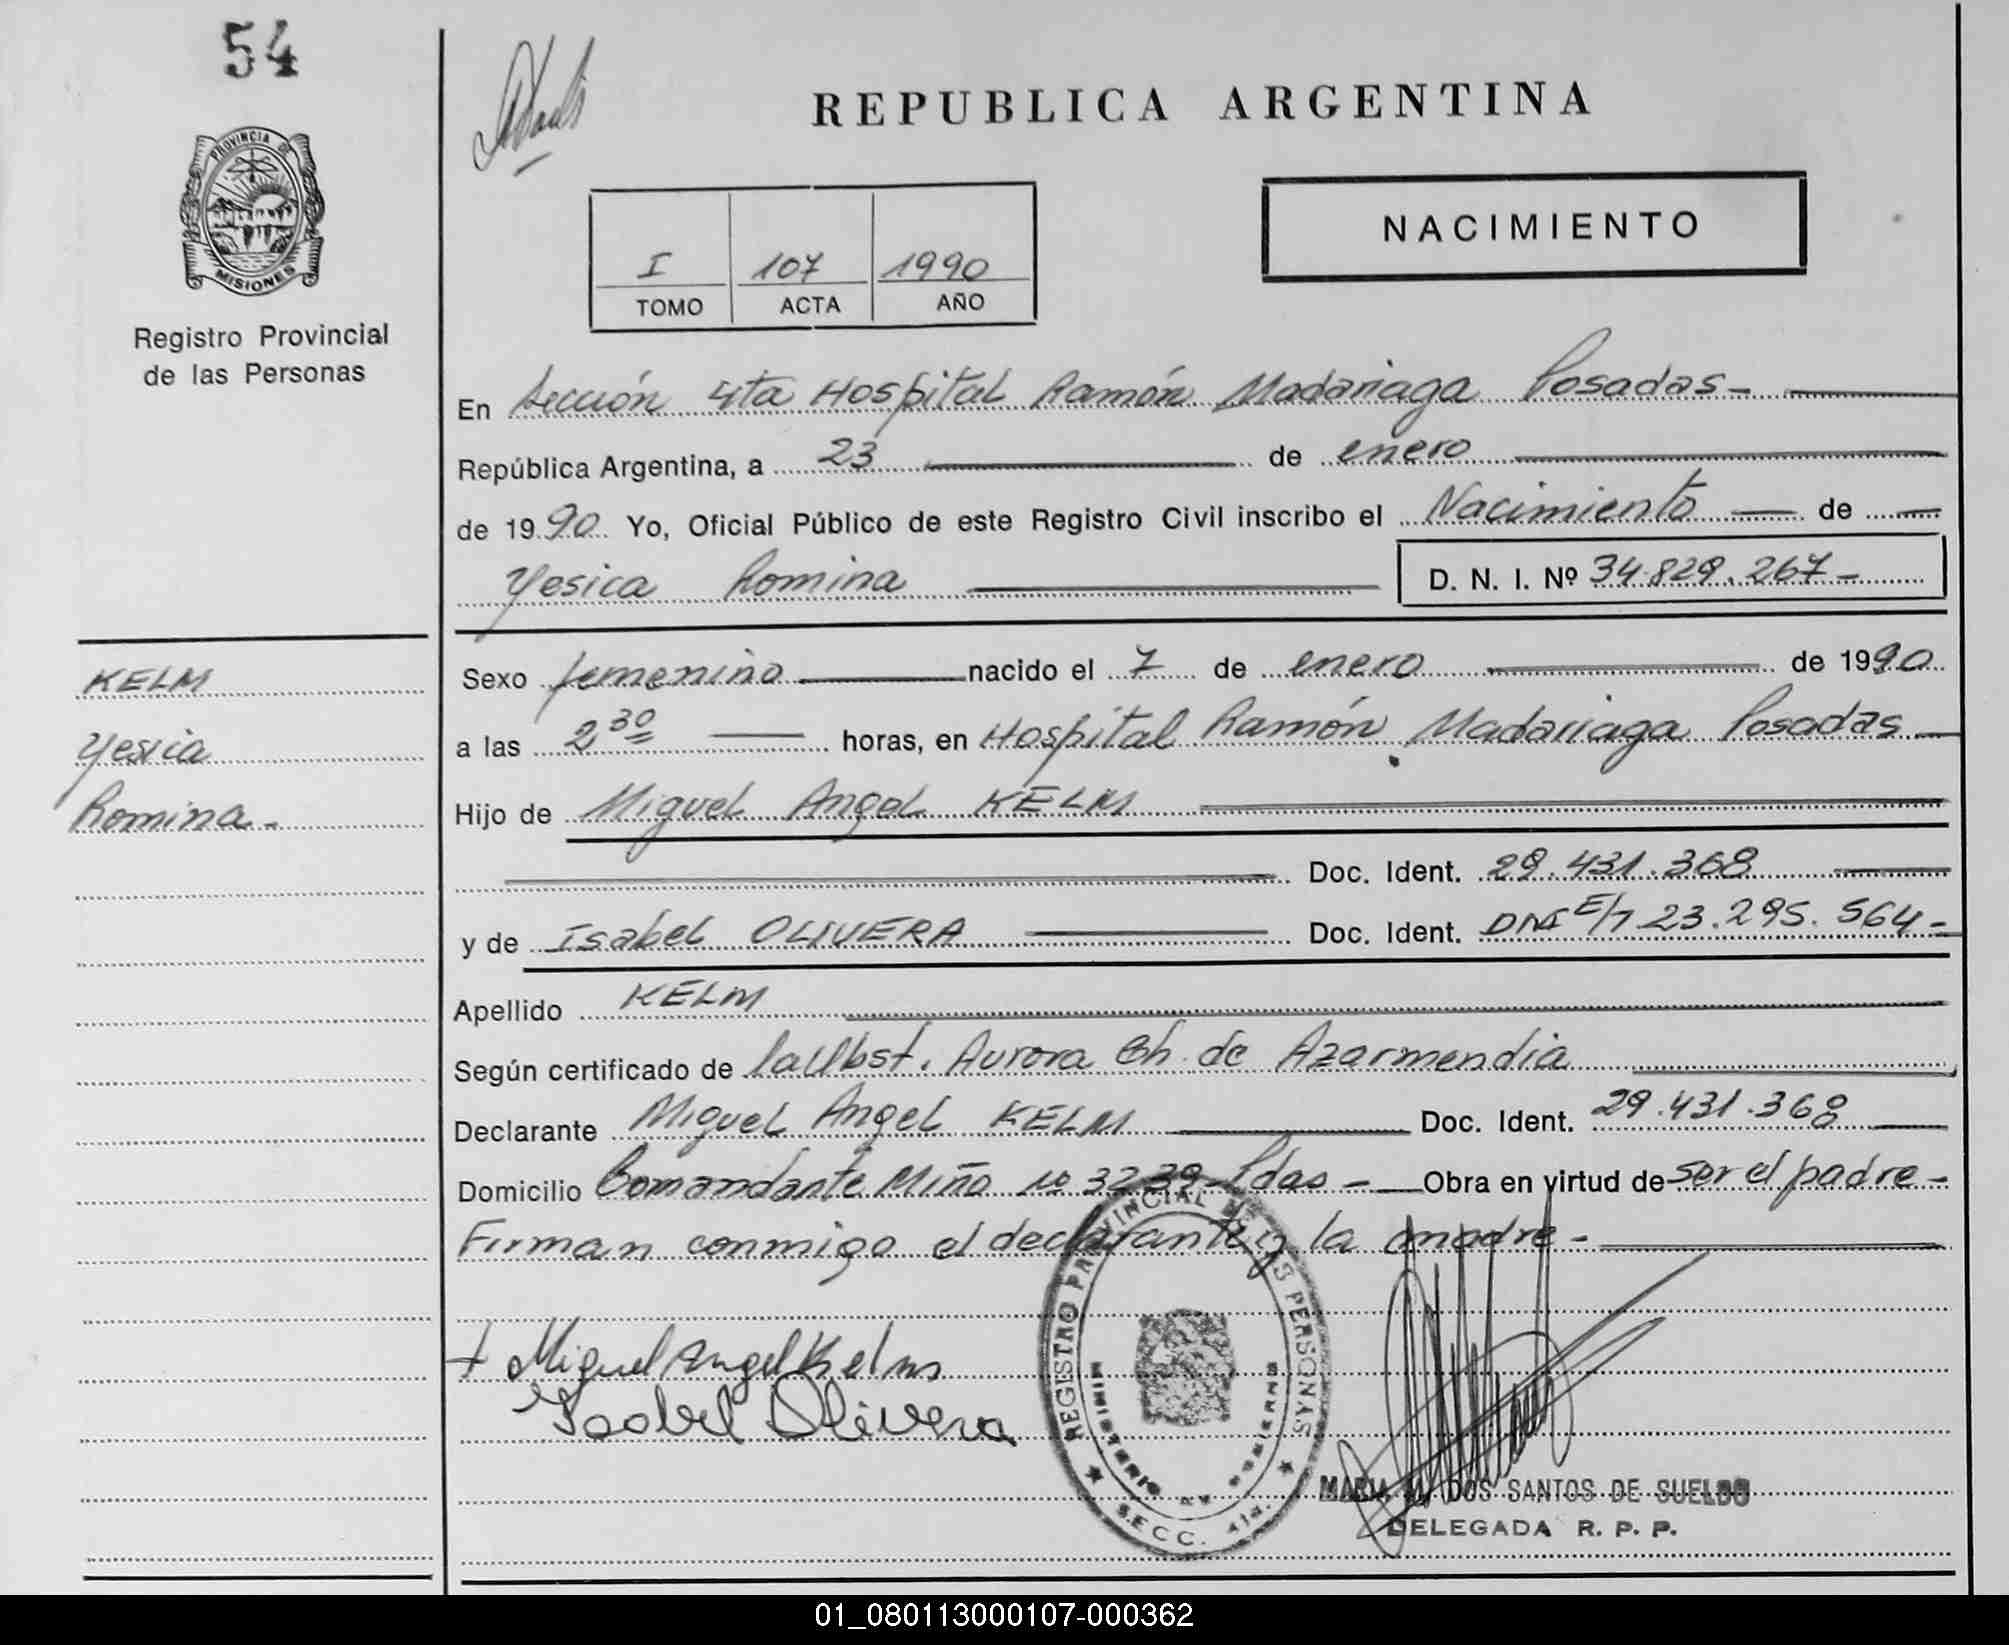 54
REPUBLICA ARGENTINA
PROVINCIA DE MISIONES
Registro Provincial
de las Personas
I 107 1990
TOMO ACTA AÑO
NACIMIENTO
En Sección 4ta Hospital Ramón Madariaga Posadas -
República Argentina, a 23 de enero
de 1990. Yo, Oficial Público de este Registro Civil inscribo el Nacimiento de
Yesica Romina D. N. I. Nº 34.829.267-
KELM
Yesica
Romina -
Sexo femenino nacido el 7 de enero de 1990
a las 2 30 horas, en Hospital Ramón Madariaga Posadas
Hijo de Miguel Angel KELM
Doc. Ident. 29.431.368
y de Isabel OLIVERA Doc. Ident. DNI E/T 23.295.564-
Apellido KELM
Según certificado de la Obst. Aurora Ch. de Azarmendia
Declarante Miguel Angel KELM Doc. Ident. 29.431.368
Domicilio Comandante Miño Nº 3239 - Pdas - Obra en virtud de ser el padre -
Firman conmigo el declarante y la madre -
+ Miguel Angel Kelm
Isabel Olivera
REGISTRO PROVINCIAL DE LAS PERSONAS
MINISTERIO DE GOBIERNO
SECC. 4ta.
MARIA M. DOS SANTOS DE SUELDO
DELEGADA R. P. P.
01_080113000107-000362